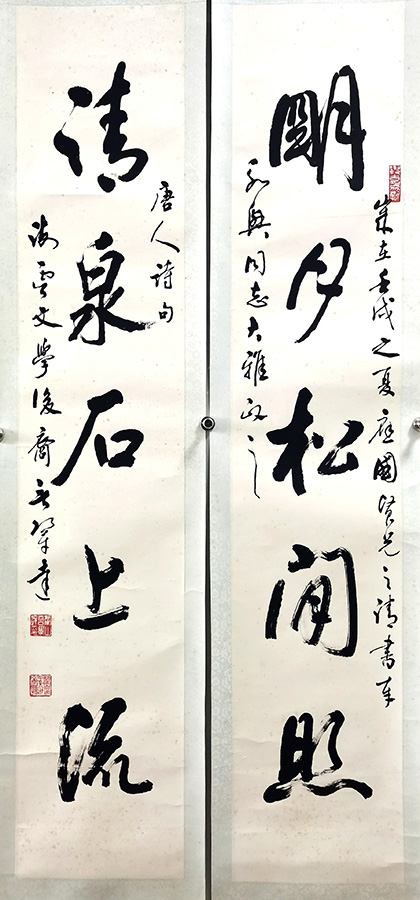 歲在壬戌之夏應國賢兄之請書奉
明月松間照
永興同志大雅政之
唐人詩句
清泉石上流
海雲文學後裔